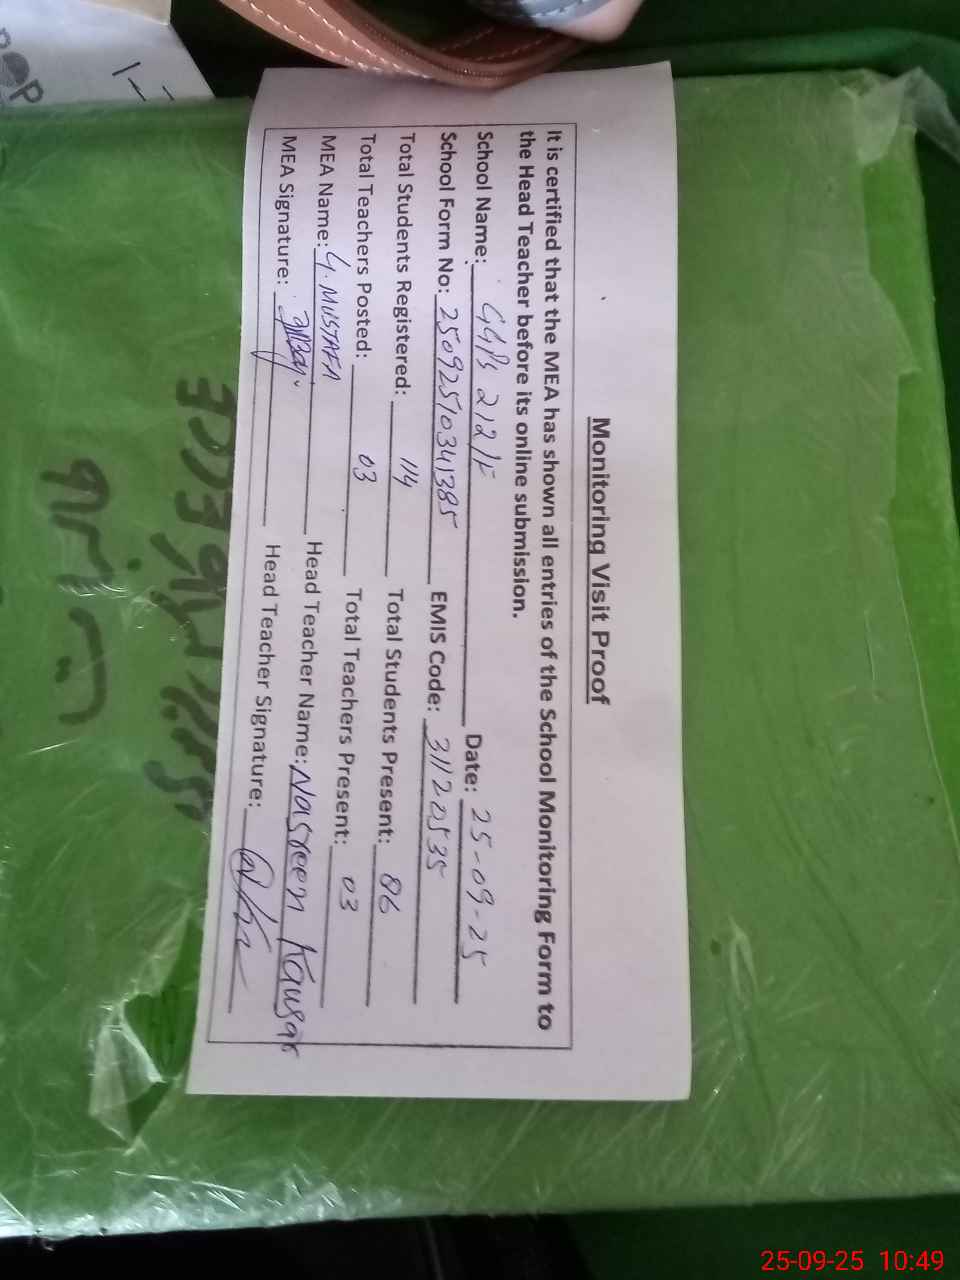 Monitoring Visit Proof
It is certified that the MEA has shown all entries of the School Monitoring Form to
the Head Teacher before its online submission.
School Name: GGPS 212/F Date: 25-09-25
School Form No: 25092510341385 EMIS Code: 31120535
Total Students Registered: 114 Total Students Present: 86
Total Teachers Posted: 03 Total Teachers Present: 03
MEA Name: G. MUSTAFA Head Teacher Name: Nasreen Kausar
MEA Signature: Head Teacher Signature:
25-09-25 10:49